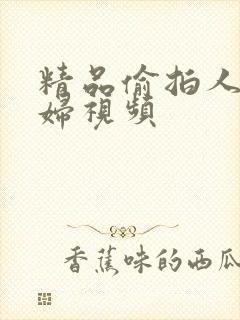 精品偷拍人
婦視頻
香蕉味的西瓜